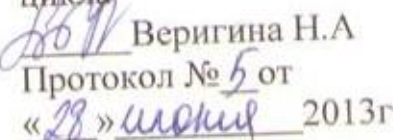 Веригина Н.А
Протокол № 5 от
«28» июня 2013г